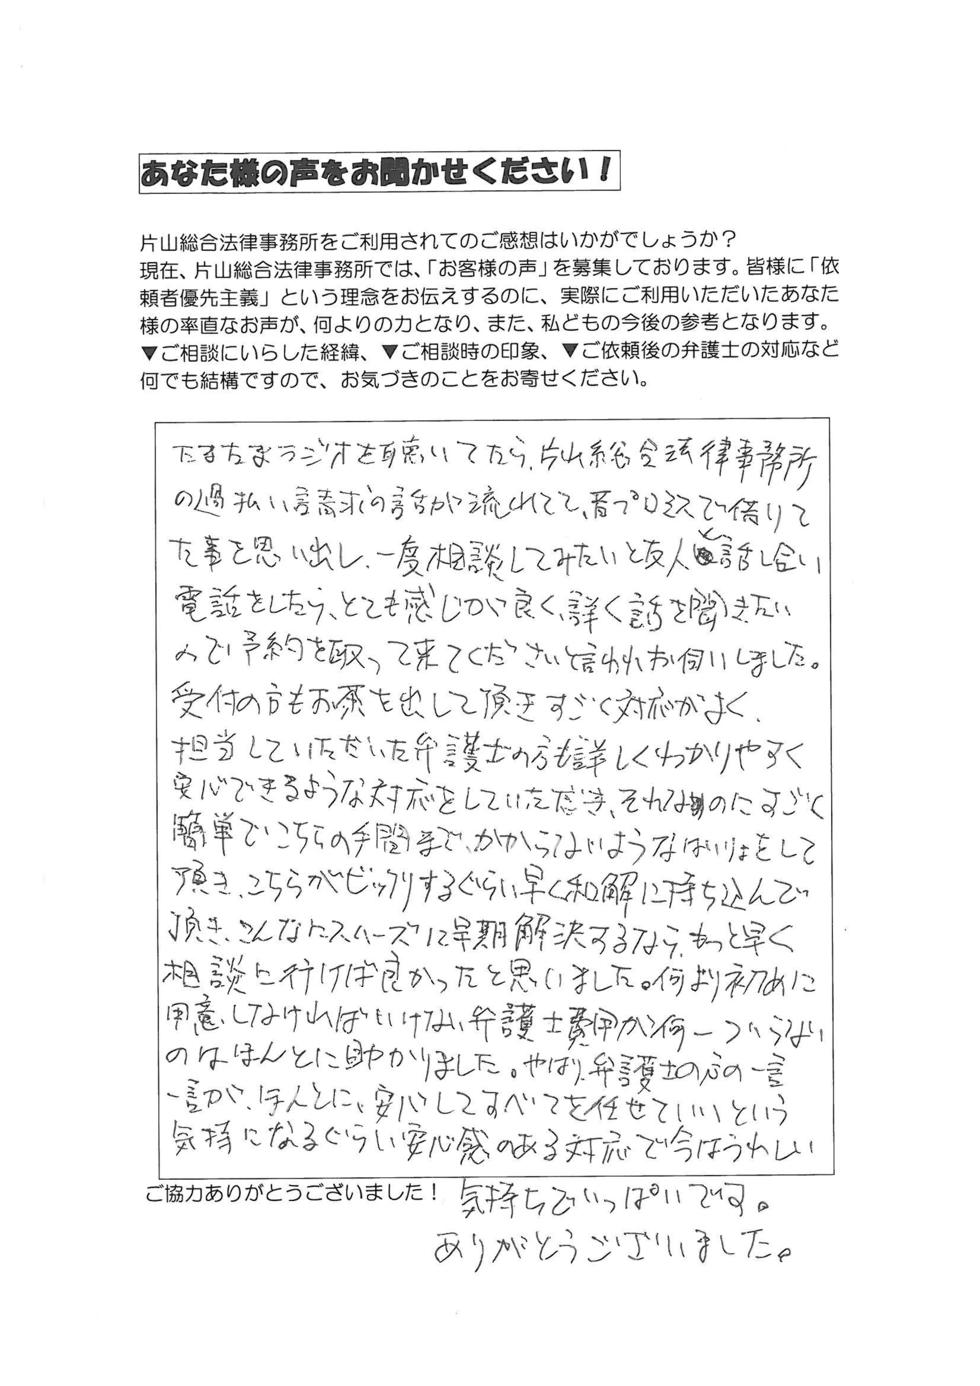 あなた様の声をお聞かせください！
片山総合法律事務所をご利用されてのご感想はいかがでしょうか？
現在、片山総合法律事務所では、「お客様の声」を募集しております。皆様に「依
頼者優先主義」という理念をお伝えするのに、実際にご利用いただいたあなた
様の率直なお声が、何よりの力となり、また、私どもの今後の参考となります。
▼ご相談にいらした経緯、▼ご相談時の印象、▼ご依頼後の弁護士の対応など
何でも結構ですので、お気づきのことをお寄せください。
たまたまラジオを聴いてたら、片山総合法律事務所
の過払い請求の話が流れてて、昔プロミスで借りて
た事を思い出し、一度相談してみたいと友人と話し合い
電話をしたら、とても感じが良く、詳く話を聞きたい
ので予約を取って来てくださいと言われお伺いしました。
受付の方もお茶を出して頂きすごく対応がよく、
担当していただいた弁護士の方も詳しくわかりやすく
安心できるような対応をしていただき、それなのにすごく
簡単でこちらの手間まで、かからないようなはいりょをして
頂き、こちらがビックリするぐらい早く和解に持ち込んで
頂き、こんなにスムーズに早期解決するなら、もっと早く
相談に行けば良かったと思いました。何より初めに
用意しなければいけない弁護士費用が何一ついらない
のはほんとに助かりました。やはり、弁護士の方の一言
一言が、ほんとに、安心してすべてを任せていいという
気持になるぐらい安心感のある対応で今はうれしい
気持ちでいっぱいです。
ありがとうございました。
ご協力ありがとうございました！